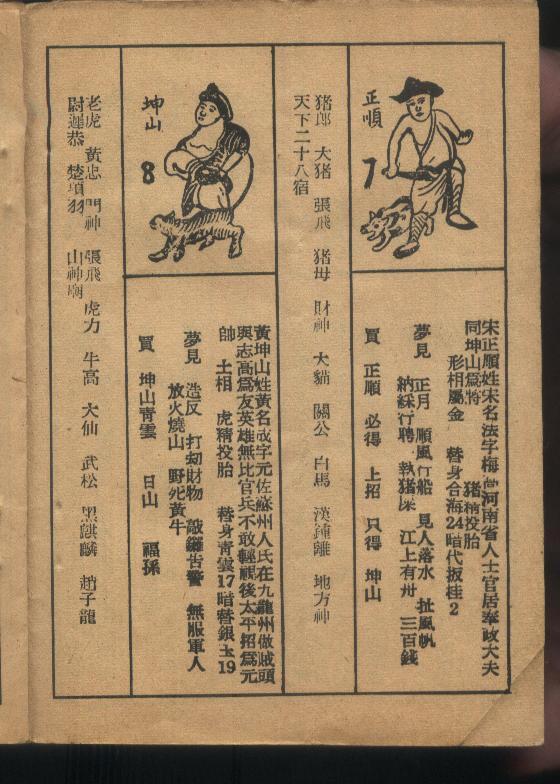 正順
7
宋正順姓宋名法字梅河南省人士官居奉政大夫
同坤山爲將 猪精投胎
形相屬金 替身合海24暗代扳桂2
夢見 正月 順風行船 見人落水 扯風帆
納綵行聘 執猪屎 江上有卅 三百錢
買 正順 必得 上招 只得 坤山
猪郎 大猪 張飛 猪母 財神 大貓 關公 白馬 漢鍾離 地方神
天下二十八宿
坤山
8
黃坤山姓黃名字元佐蘇州人氏在九龍州做賊頭
與志高爲友英雄無比官兵不敢輕視後太平招爲元
帥 土相 虎精投胎 替身靑雲17暗替銀玉19
夢見 造反 打刼財物 敲鑼吿警 無服軍人
放火燒山 野死黃牛
買 坤山靑雲 日山 福孫
老虎 黃忠 門神 張飛 虎力 牛高 大仙 武松 黑麒麟 趙子龍
尉遲恭 楚項羽 山神廟